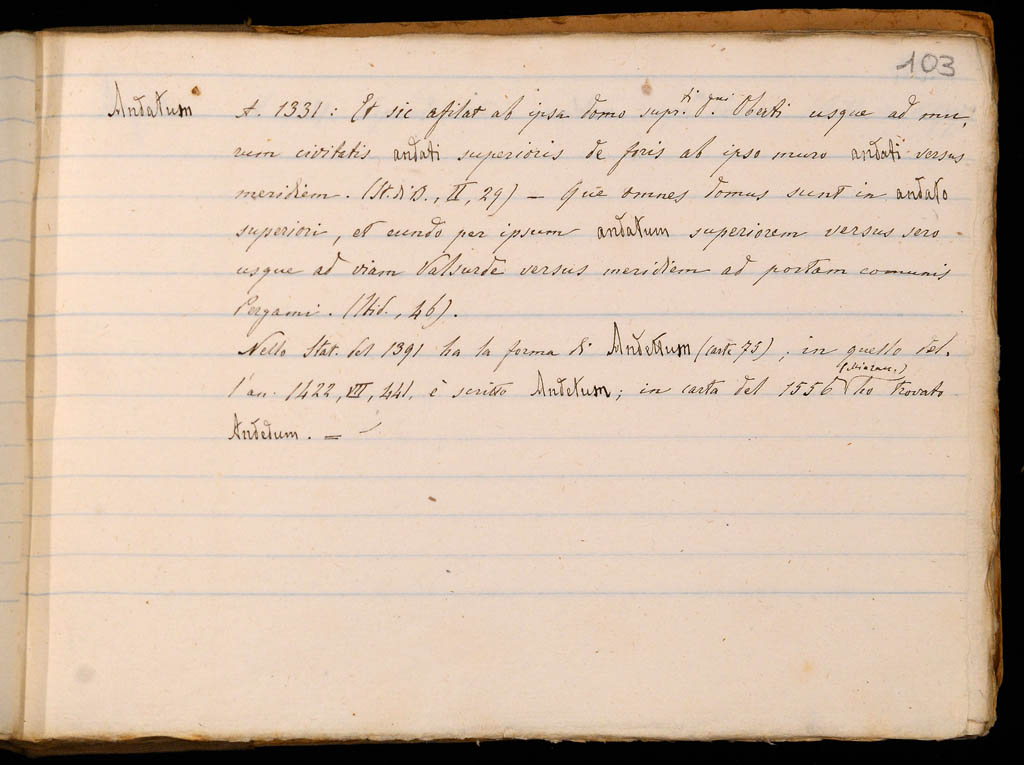 103
Andatum A. 1331: Et sic afilat ab ipsa domo supr.ti d.ni Oberti usque ad mu,
rum civitatis andati superioris de foris ab ipso muro andati versus
meridiem. (St. di D., II, 29) — Que omnes domus sunt in andato
superiori, et eundo per ipsum andatum superiorem versus sero
usque ad viam Valsurde versus meridiem ad portam comunis
Pergami. (Ibid., 46).
Nello Stat. del 1391 ha la forma di Andettum (carte 75); in quello del,
l'an. 1422, VII, 441, è scritto Andetum; in carta del 1556 (Miaran.) ho trovato
Andedum. =